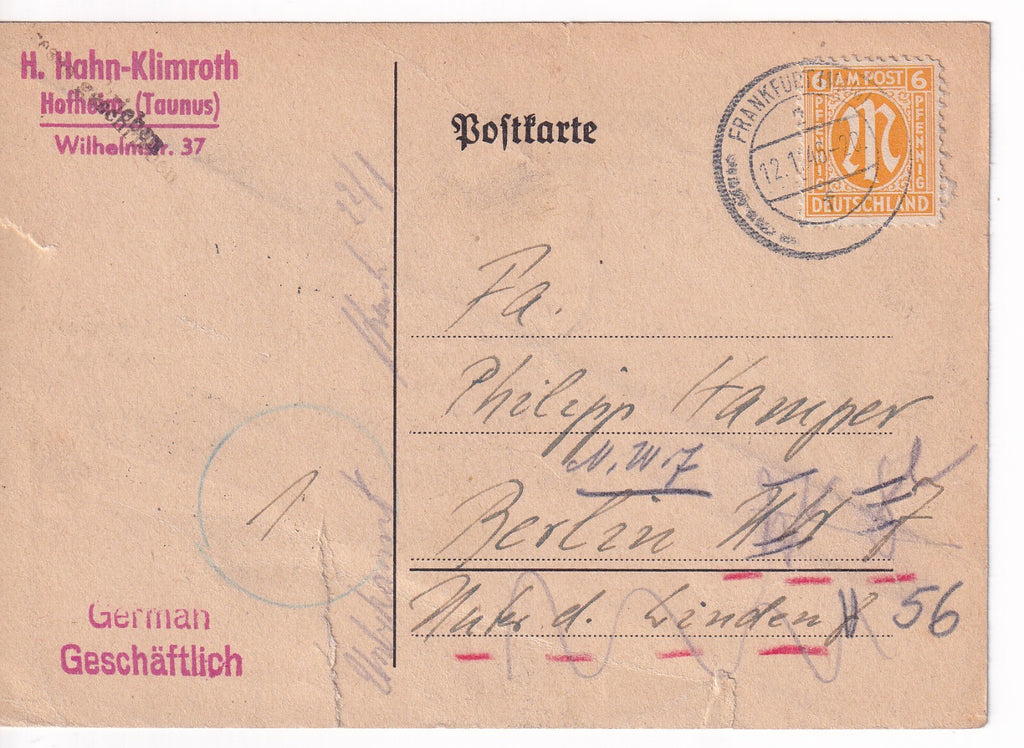 H. Hahn-Klimroth
Hofheim (Taunus)
Wilhelmstr. 37
Postkarte
FRANKFURT
12.1.46-20
6 AM POST 6
PFENNIG
PFENNIG
M
DEUTSCHLAND
Fa.
Philipp Hamper
N.W.7
Berlin
7
Unter d. Linden 56
1
Unbekannt
German
Geschäftlich